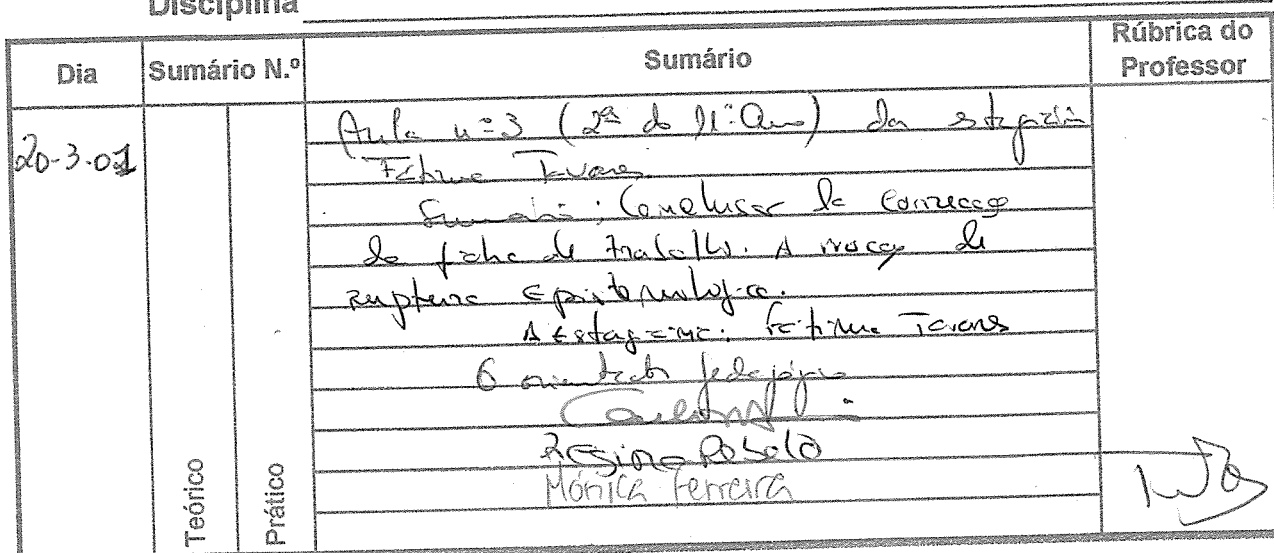 Disciplina
Dia Sumário N.º Sumário Rúbrica do Professor
20-3-01
Aula nº 3 (2ª do 11º Ano) da estagiária
Fátima Tavares
Sumário: Conclusão da correcção
da ficha de trabalho. A noção de
ruptura epistemológica.
A Estagiária: Fátima Tavares
O orientador pedagógico
Regina Rebelo
Mónica Ferreira
Teórico
Prático